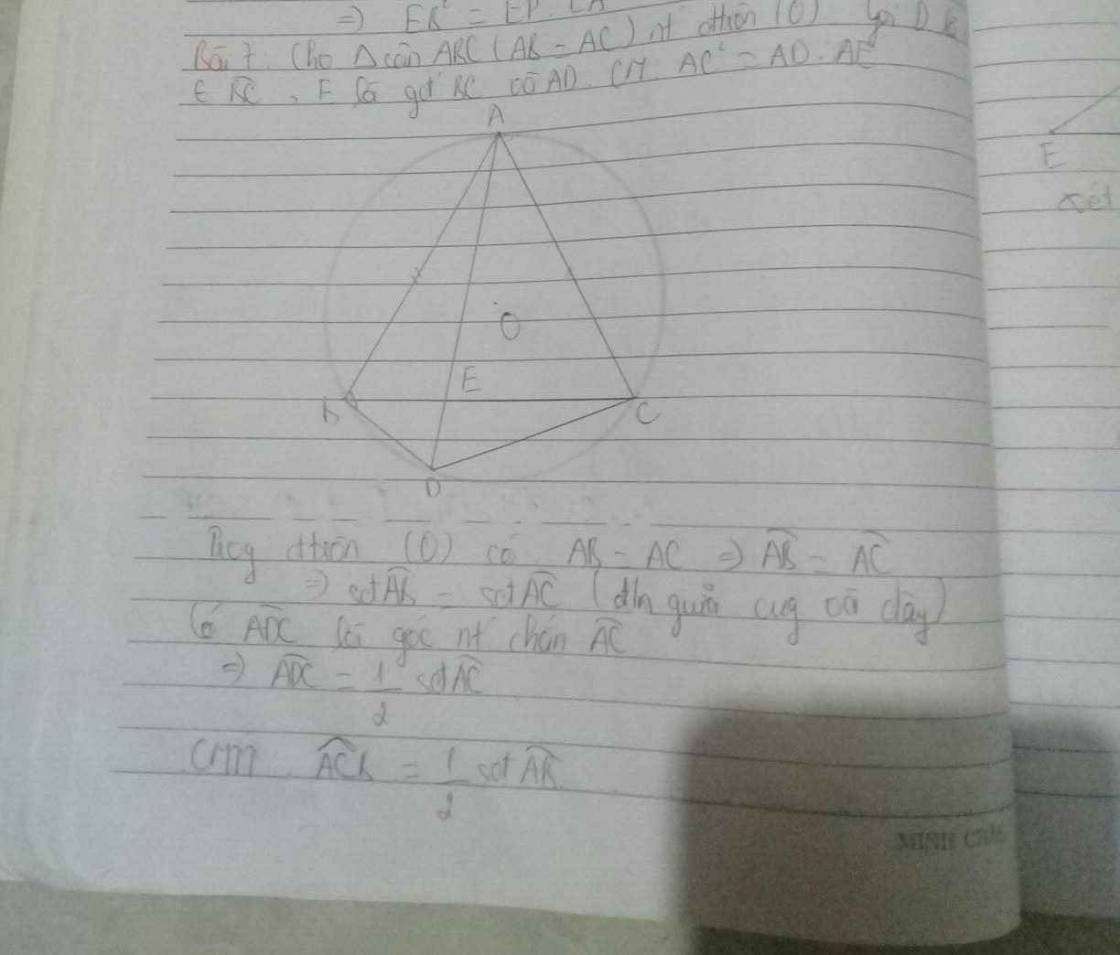 =) EB² = EP.
Bài 7. Cho Δ cân ABC (AB = AC) nt đtròn (O) Gọi D
∈ BC, E là gđ BC và AD. CM AC² = AD. AE
A
E
xét
O
E
B
C
D
Trog đtròn (O) có AB = AC => AB = AC
=> sđAB = sđAC (đln giữa cug và dây)
Có ADC là góc nt chắn AC
=> ADC = 1/2 sđAC
CMTT ACB = 1/2 sđAB
MINH CHÂU